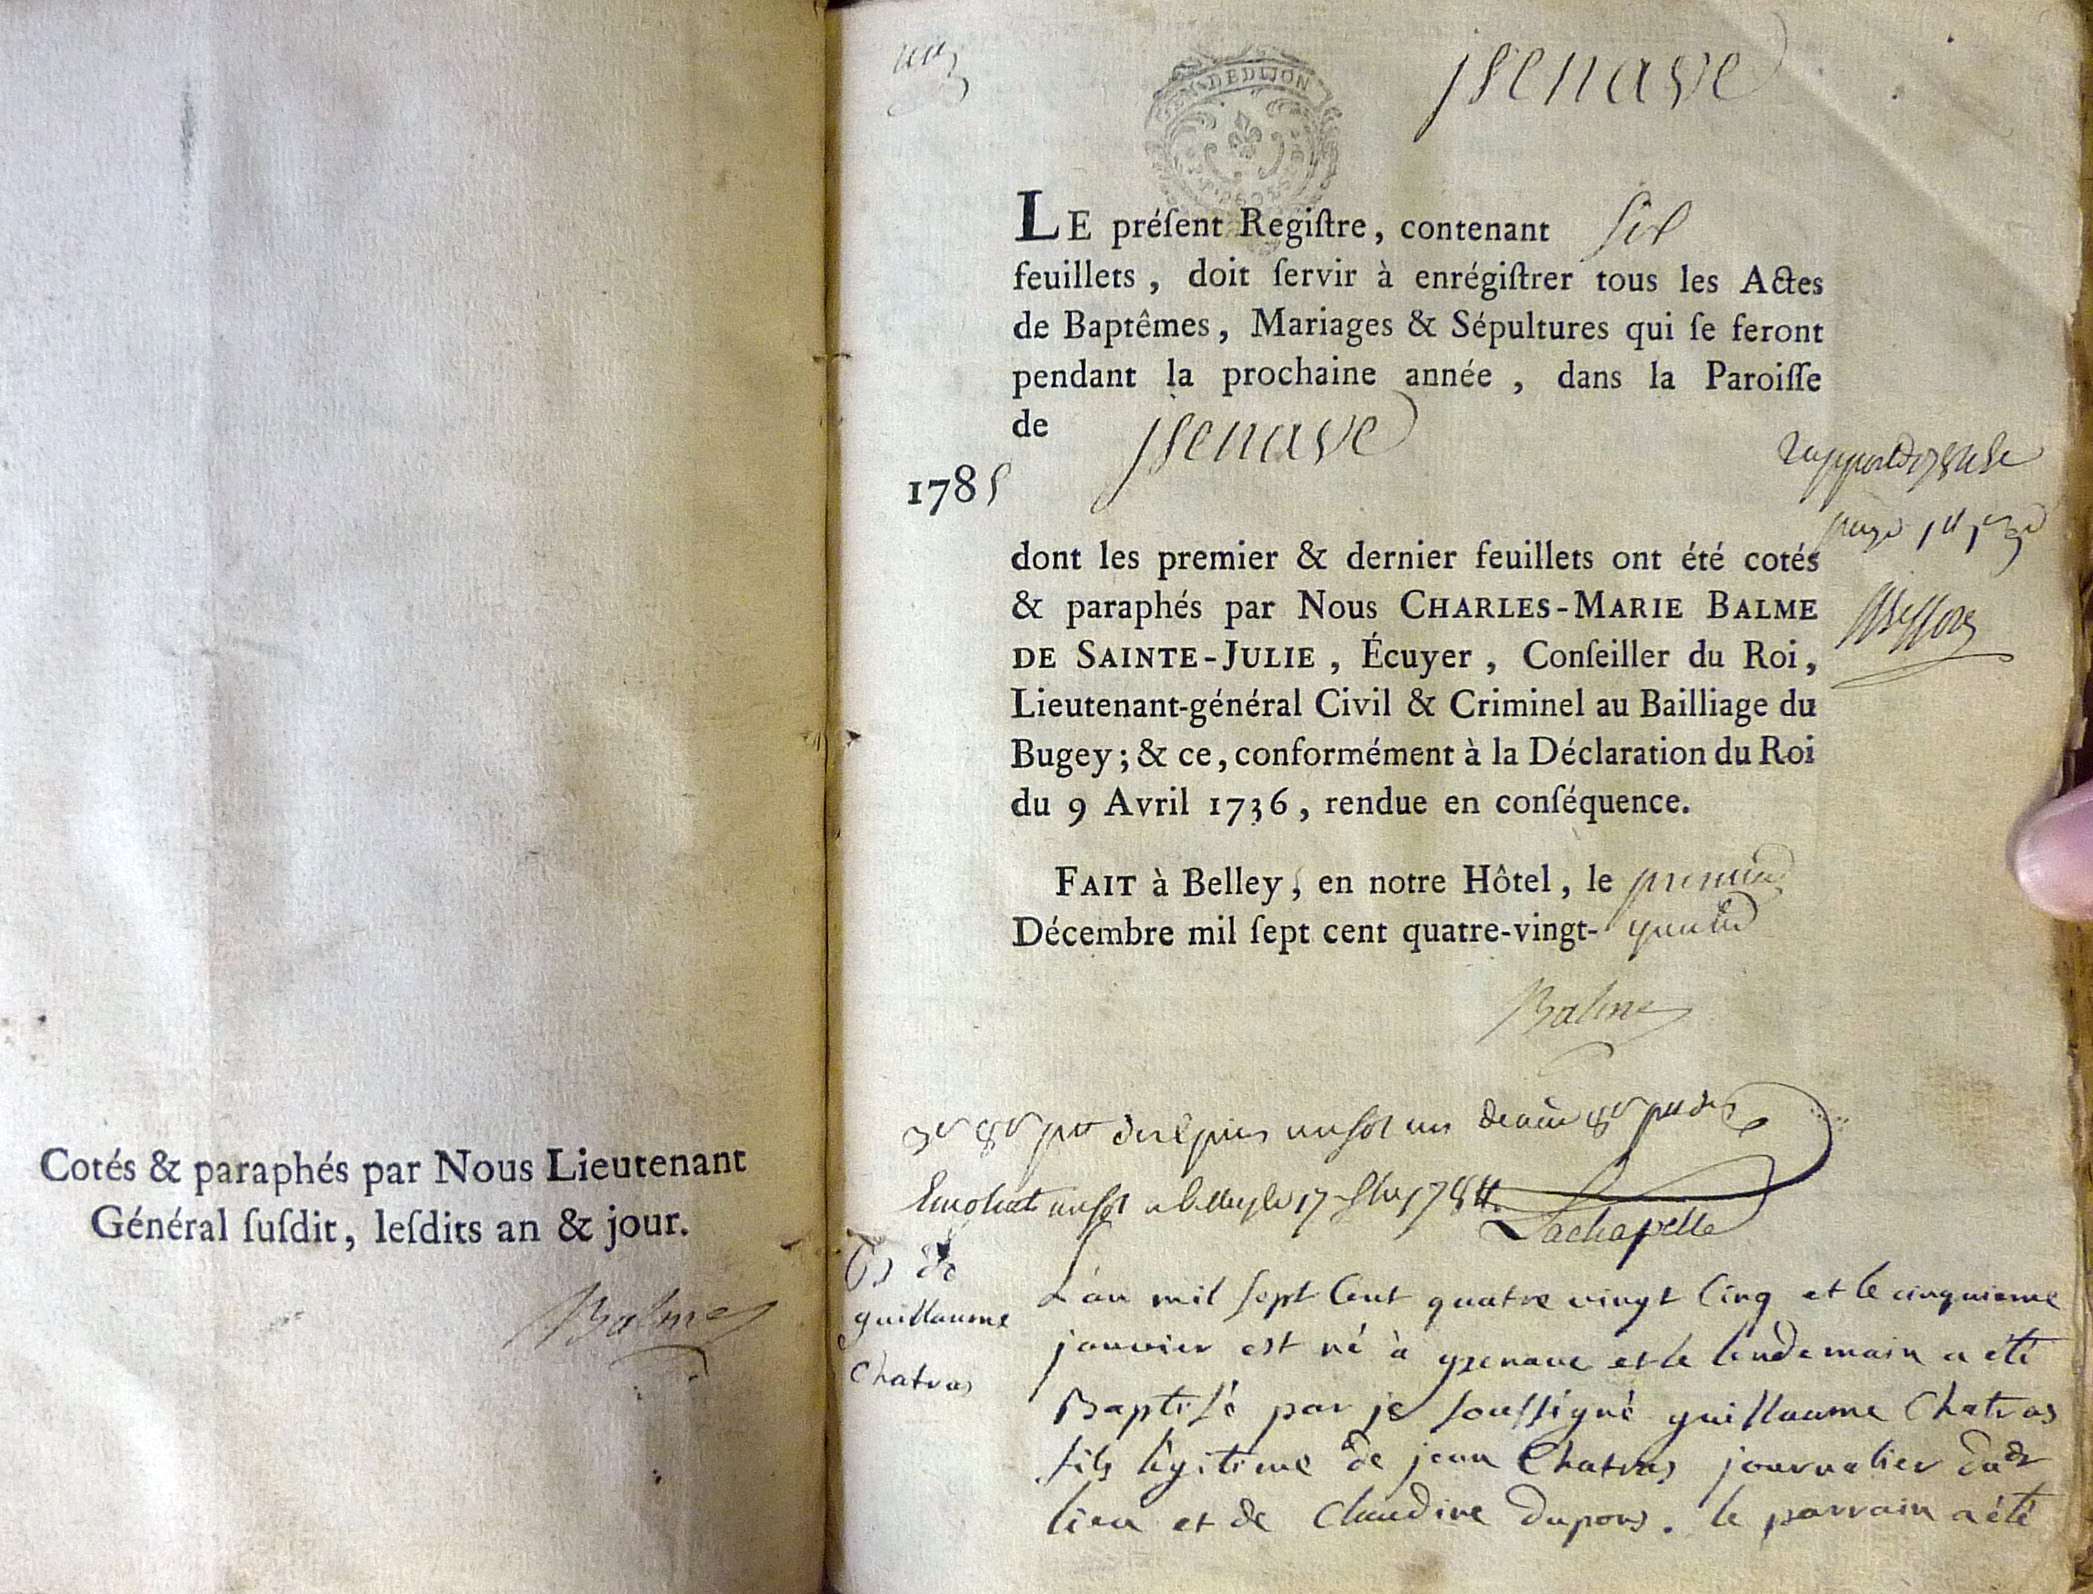 Cotés & paraphés par Nous Lieutenant
Général ſuſdit, leſdits an & jour.
Balme
GEN. DE DIJON
jsenave
LE préſent Regiſtre, contenant six
feuillets, doit ſervir à enrégiſtrer tous les Actes
de Baptêmes, Mariages & Sépultures qui ſe feront
pendant la prochaine année, dans la Paroiſſe
de jsenave
1785
dont les premier & dernier feuillets ont été cotés
& paraphés par Nous CHARLES-MARIE BALME
DE SAINTE-JULIE, Écuyer, Conſeiller du Roi,
Lieutenant-général Civil & Criminel au Bailliage du
Bugey; & ce, conformément à la Déclaration du Roi
du 9 Avril 1736, rendue en conſéquence.
FAIT à Belley, en notre Hôtel, le premier
Décembre mil ſept cent quatre-vingt- quatre
Balme
a belley le 17 1784.
Lachapelle
Bs de
guillaume
Chatras
L'an mil sept Cent quatre vingt Cinq et le cinquieme
janvier est né à yzenave et le lendemain a été
Baptisé par je soussigné guillaume Chatras
fils légitime de jean Chatras journalier dudt
lieu et de Claudine Dupons. le parrain a été